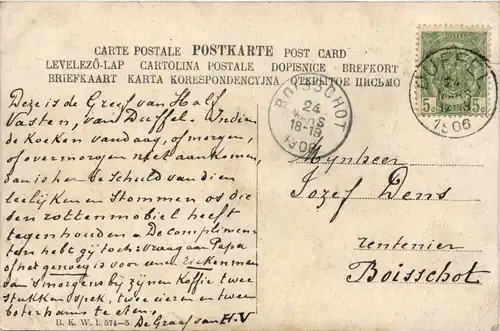 CARTE POSTALE POSTKARTE POST CARD
LEVELEZŐ-LAP CARTOLINA POSTALE DOPISNICE BREFKORT
BRIEFKAART KARTA KORESPONDENCYJNA ОТКРЫТОЕ ПИСЬМО
DUFFEL
24
MARS
1906
5c 5c
BOISSCHOT
24
MARS
18-19
1906
Deze is de Greef van Half
Vasten, van Duffel. Indien
de Koeken vandaag, of morgen,
of overmorgen niet aankomen,
dan is her de Schuld van dien
leelijken en Stommen os die
den rottenmobiel heeft
tegenhouden. De complimen-
ten hebt gij toch. Vraag aan Papa
of het genoeg is voor eenen ziekenmen
van 's morgens bij zijnen Koffie twee
stukken spek, twee eieren en twee
boterhams te eten.
De Graaf van H.V
Mynheer
Jozef Dens
rentenier
Boisschot
B. K. W. I. 574-5.